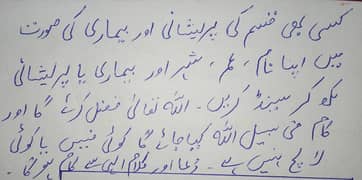 کسی بھی قسم کی پریشانی اور بیماری کی صورت
میں اپنا نام ، عمر ، شہر اور بیماری یا پریشانی
لکھ کر سینڈ کریں ۔ اللہ تعالیٰ فضل کرئے گا اور
کام فی سبیل اللہ کیا جائے گا کوئی فیس یا کوئی
لالچ نہیں ہے ۔ دعا اور کلام الہی سے کام ہو گا ۔